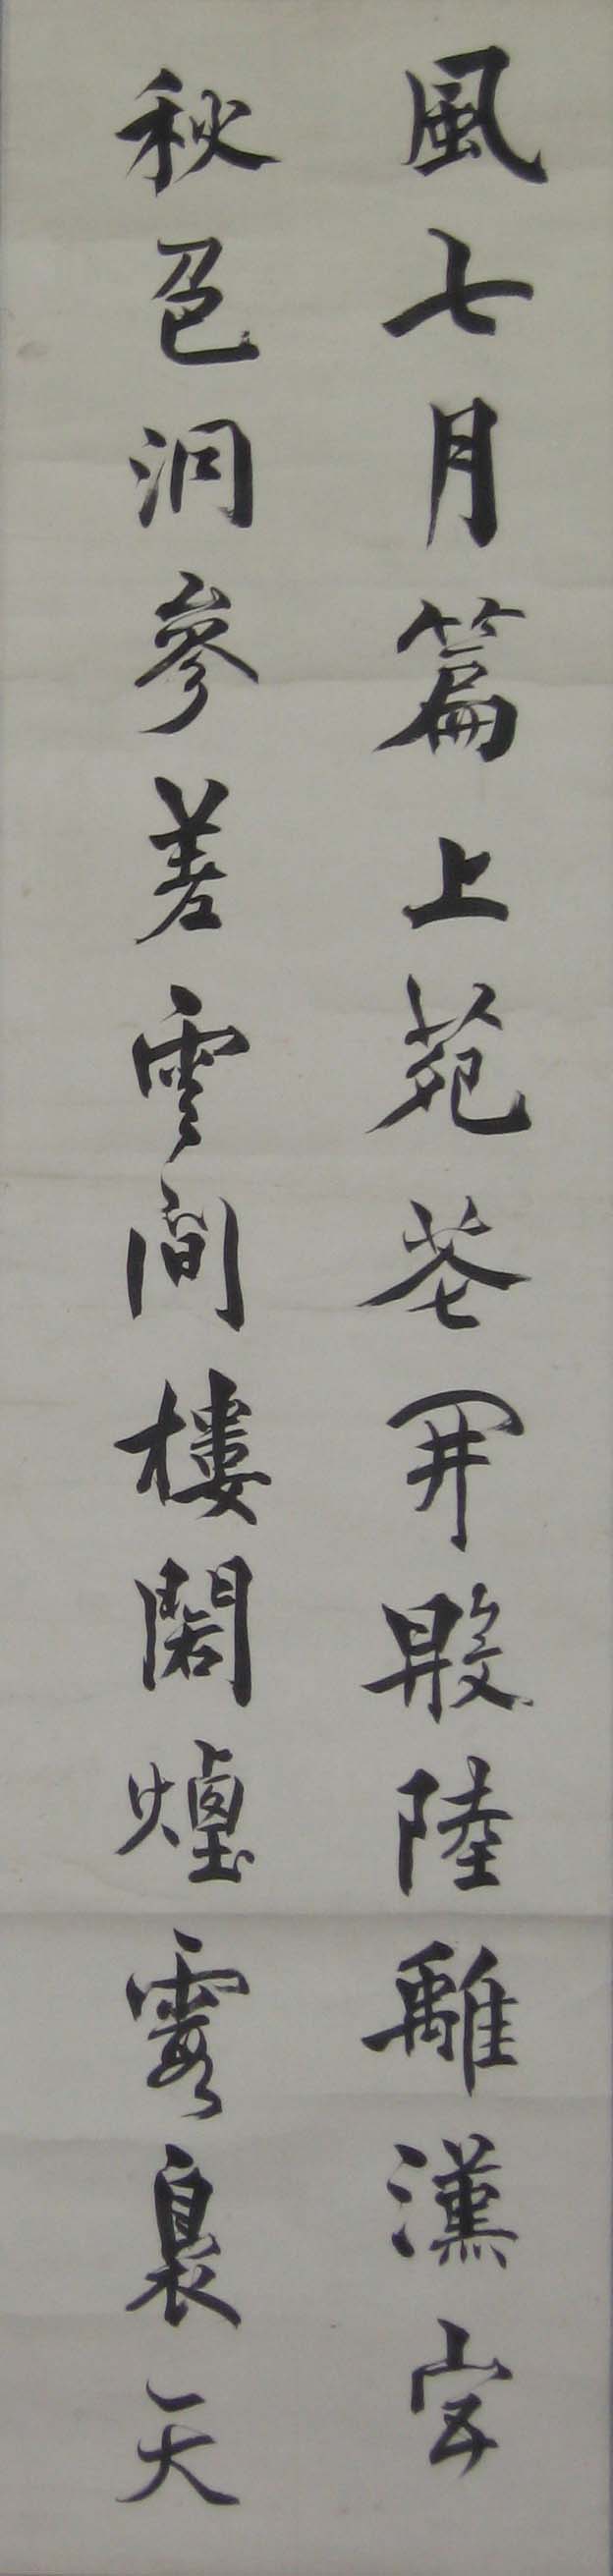 風七月篇上苑花開殿陸離漢宮
秋色洞參差雲間樓閣煙霞裏天